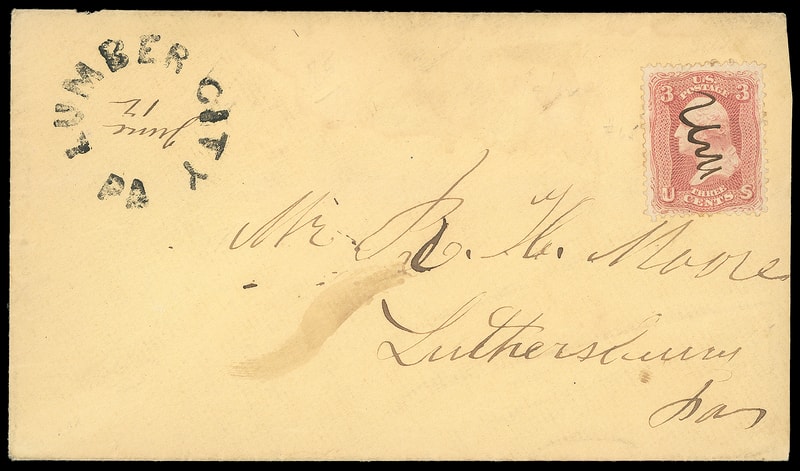 LUMBER CITY
PA
June
12
U.S.
POSTAGE
3 3
U S
THREE
CENTS
Mr. R. H. Moore
Luthersburg
Pa